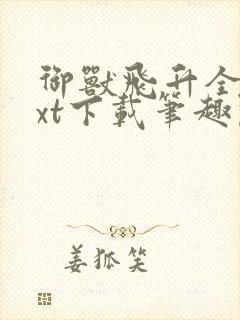 御獸飛升全
xt下載筆趣
姜狐笑